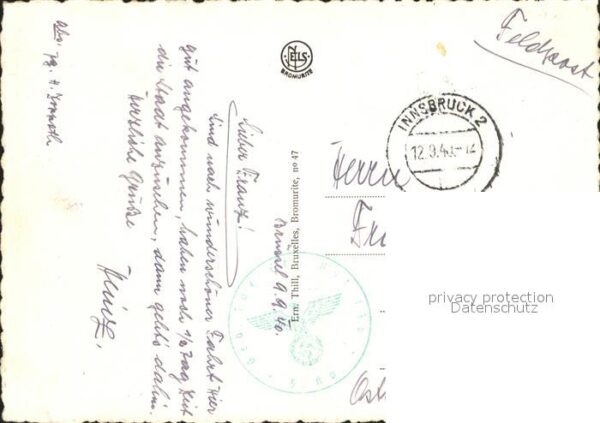 Feldpost
INNSBRUCK 2
12.9.40.-12
NELS
BROMURITE
Herrn
Ern. Thill, Bruxelles, Bromurite, no 47
Brüssel 9.9.40.
Lieber Franz!
Sind nach wunderschöner Fahrt hier
gut angekommen, haben noch 1/2 Tag Zeit
die Stadt anzusehen, dann geht's dahin.
Herzliche Grüße
Heinz.
Abs. Jg. H.
Ost
privacy protection
Datenschutz